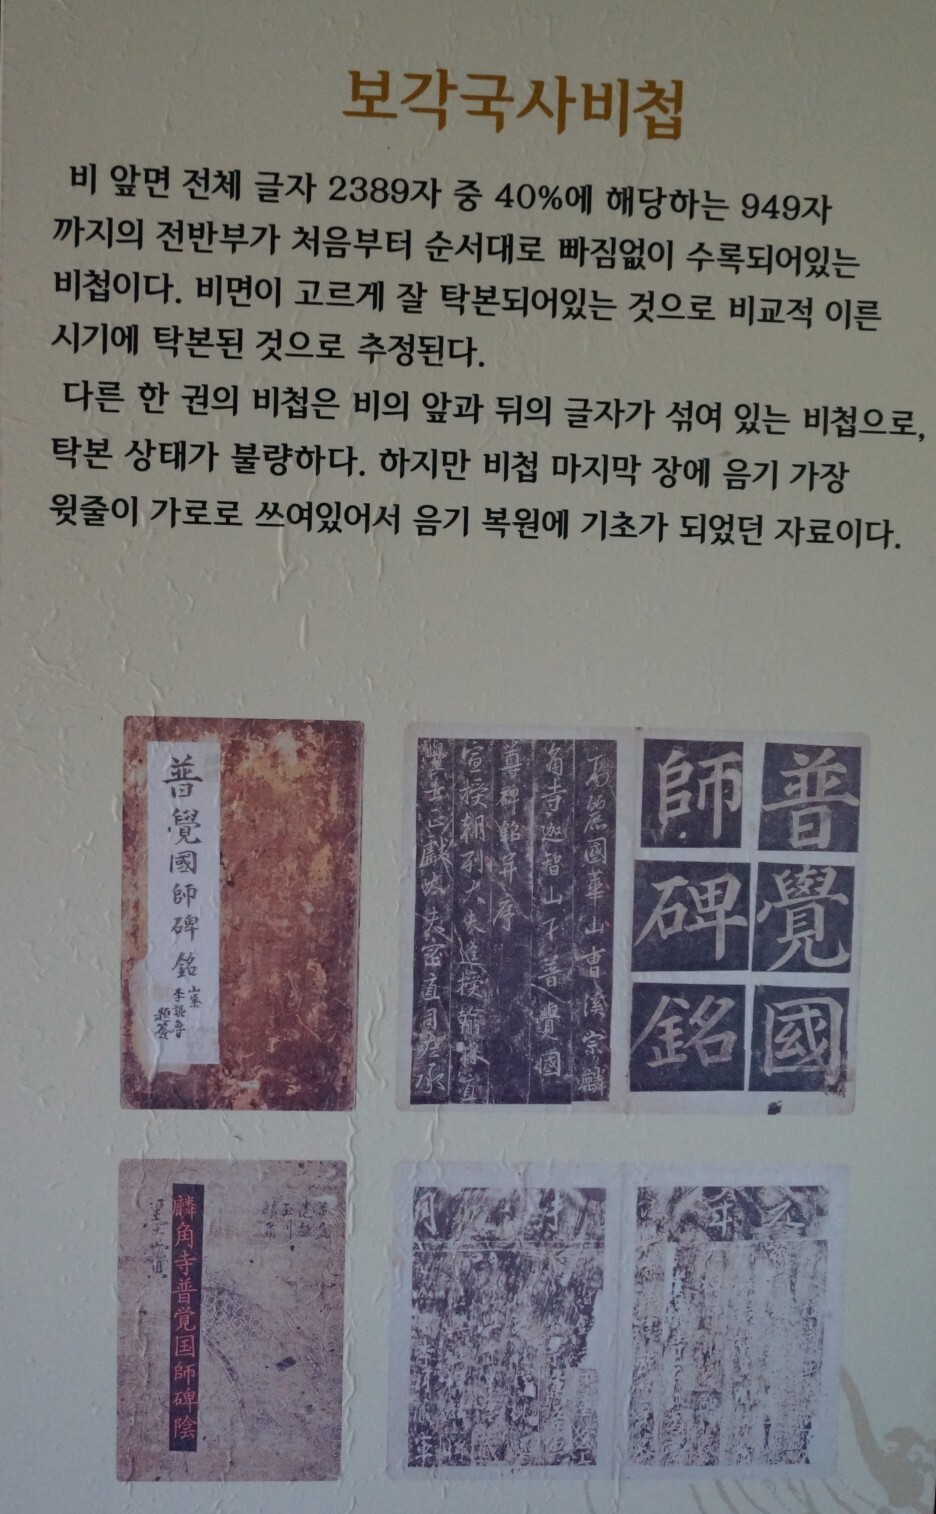 보각국사비첩
비 앞면 전체 글자 2389자 중 40%에 해당하는 949자
까지의 전반부가 처음부터 순서대로 빠짐없이 수록되어있는
비첩이다. 비면이 고르게 잘 탁본되어있는 것으로 비교적 이른
시기에 탁본된 것으로 추정된다.
다른 한 권의 비첩은 비의 앞과 뒤의 글자가 섞여 있는 비첩으로,
탁본 상태가 불량하다. 하지만 비첩 마지막 장에 음기 가장
윗줄이 가로로 쓰여있어서 음기 복원에 기초가 되었던 자료이다.
普覺國師碑銘
普覺國
師碑銘
高麗國華山曹溪宗麟
角寺迦智山下普覺國
尊碑銘并序
宣授朝列大夫遙授翰林直
學士正獻大夫密直司左承
麟角寺普覚国師碑陰